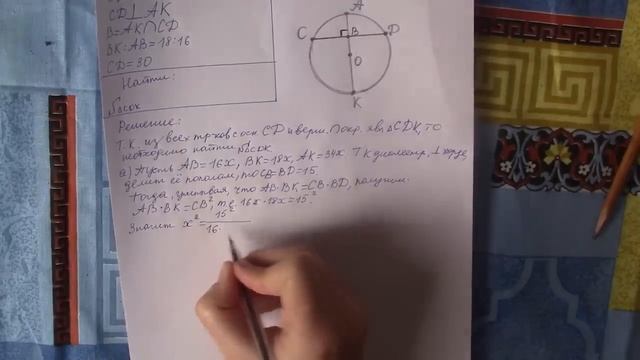 CD⊥AK
B=AK∩CD
BK:AB=18:16
CD=30
Найти:
Решение:
Т.К. из всех тр-ков с осн. CD и верш. ΔCDK, то
необходимо найти
а) Пусть AB=16x, BK=18x, AK=34x Т.К диаметр, ⊥ хорде,
делит её пополам, то CB=BD=15
Тогда, учитывая, что AB·BK=CB·BD, получим:
AB·BK=CB², т.е. 16x·18x=15²
Значит x²=15²
16·
A
C
B
D
O
K